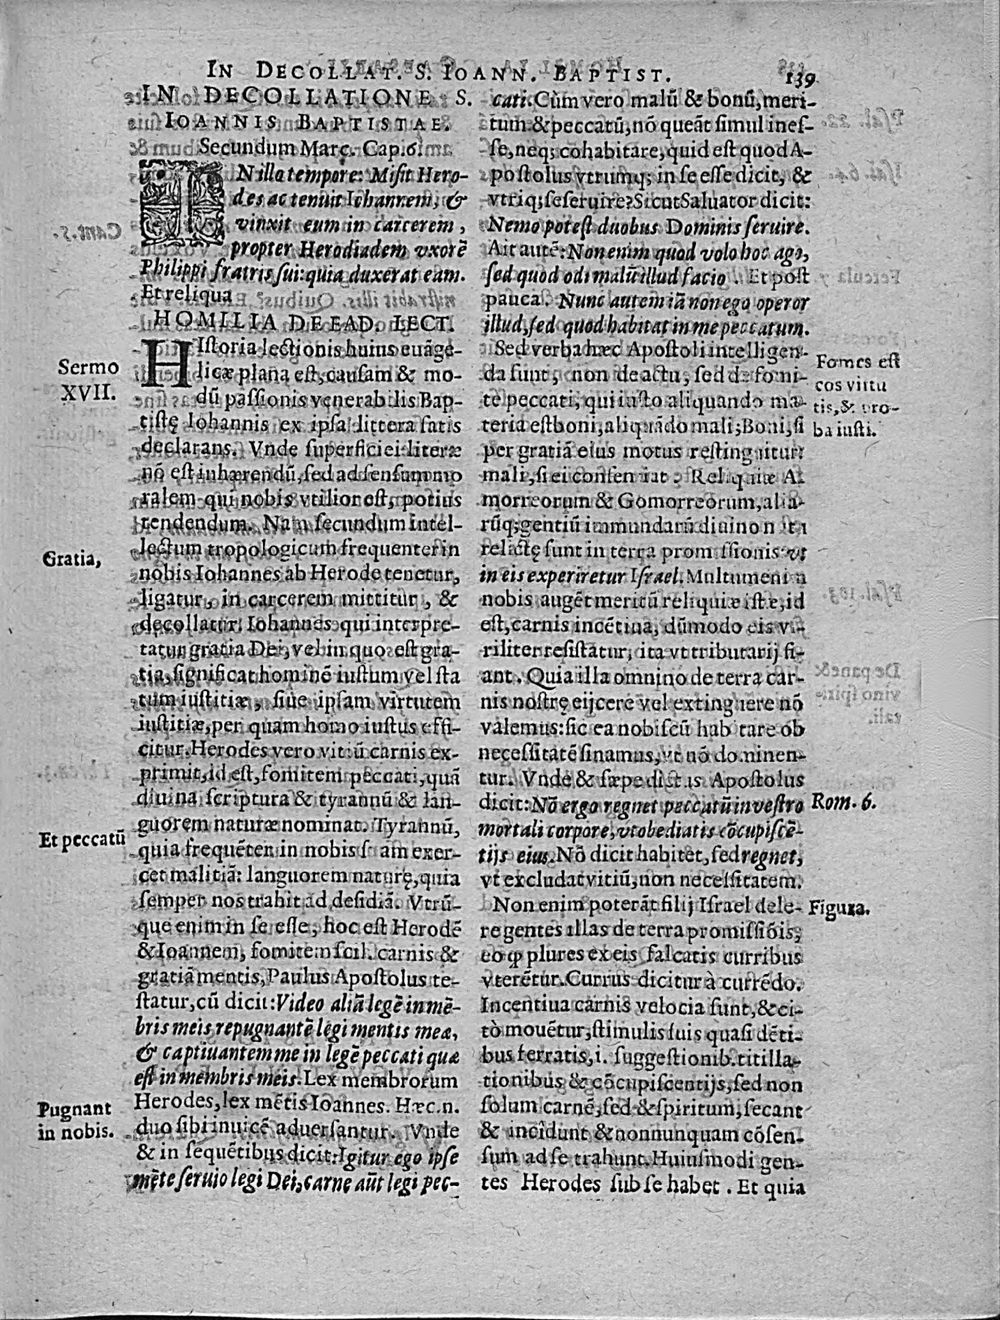 IN DECOLLAT. S. IOANN. BAPTIST. 139
IN DECOLLATIONE S.
IOANNIS BAPTISTAE.
Secundum Març. Cap. 6.
IN illa tempore: Misit Hero-
des ac tenuit Iohannem, &
vinxit eum in carcerem,
propter Herodiadem vxorē
Philippi fratris sui: quia duxerat eam.
Et reliqua
HOMILIA DE EAD. LECT.
Sermo
XVII.
HIstoria lectionis huius euāge-
licæ plana est, causam & mo-
dū passionis venerabilis Bap-
tistę Iohannis ex ipsa littera satis
declarans. Vnde superficiei literæ
nō est inhærendū, sed ad sensum mo
ralem qui nobis vtilior est, potius
tendendum. Nam secundum intel-
lectum tropologicum frequenter in
Gratia,
nobis Iohannes ab Herode tenetur,
ligatur, in carcerem mittitur, &
decollatur. Iohannes qui interpre-
tatur gratia Dei, vel in quo est gra-
tia, significat hominē iustum vel sta
tum iustitiæ, siue ipsam virtutem
iustitiæ, per quam homo iustus effi
citur. Herodes vero vitiū carnis ex-
primit, id est, fomitem peccati, quā
diuina scriptura & tyrannū & lan-
guorem naturæ nominat. Tyrannū,
Et peccatū
quia frequēter in nobis suam exer-
cet malitiā: languorem naturę, quia
semper nos trahit ad desidiā. Vtrū-
que enim in se esse, hoc est Herodē
& Ioannem, fomitem scil. carnis &
gratiā mentis, Paulus Apostolus te-
statur, cū dicit: Video aliā legē in mē-
bris meis repugnantē legi mentis meæ,
& captiuantem me in legē peccati quæ
est in membris meis. Lex membrorum
Herodes, lex mētis Ioannes. Hæc. n.
Pugnant
in nobis.
duo sibi inuicē aduersantur. Vnde
& in sequētibus dicit: Igitur ego ipse
mēte seruio legi Dei, carne aūt legi pec-
cati. Cùm vero malū & bonū, meri-
tum & peccatū, nō queāt simul ines-
se, neq; cohabitare, quid est quod A-
postolus vtrumq; in se esse dicit, &
vtriq; se seruire? Sicut Saluator dicit:
Nemo potest duobus Dominis seruire.
Ait autē: Non enim quod volo hoc ago,
sed quod odi malū illud facio. Et post
pauca. Nunc autem iā non ego operor
illud, sed quod habitat in me peccatum.
Sed verba hæc Apostoli intelligen-
da sunt, non de actu, sed de fomi-
te peccati, qui iusto aliquando ma-
teria est boni, aliquādo mali; Boni, si
Fomes est
cos virtu
tis, & pro-
ba iusti.
per gratiā eius motus restinguitur:
mali, si ei consentiat. Reliquiæ A
morreorum & Gomorreorum, alia-
rūq; gentiū immundarū diuino nutu
relictę sunt in terra promissionis vt
in eis experiretur Israel. Multum enim
nobis augēt meritū reliquiæ istæ, id
est, carnis incētiua, dūmodo eis vi-
riliter resistatur, ita vt tributarij si-
ant. Quia illa omnino de terra car-
nis nostrę eijcere vel extinguere nō
valemus: sic ea nobiscū habitare ob
necessitatē sinamus, vt nō dominen-
tur. Vnde & sæpe dictus Apostolus
dicit: Nō ergo regnet peccatū in vestro
Rom. 6.
mortali corpore, vt obediatis cōcupiscē-
tijs eius. Nō dicit habitet, sed regnet,
vt excludat vitiū, non necessitatem.
Non enim poterāt filij Israel dele-
Figura.
re gentes illas de terra promissiōis,
eo ꝙ plures ex eis falcatis curribus
vterētur. Currus dicitur à currēdo.
Incentiua carnis velocia sunt, & ci-
tò mouētur, stimulis suis quasi dēti-
bus ferratis, i. suggestionib. titilla-
tionibus & cōcupiscentijs, sed non
solum carnē, sed & spiritum, secant
& incidunt & nonnunquam cōsen-
sum ad se trahunt. Huiusmodi gen-
tes Herodes sub se habet. Et quia